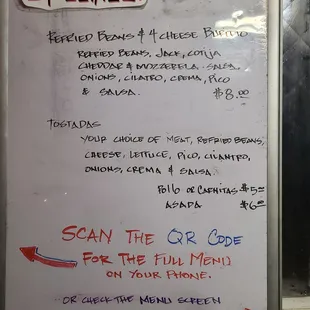 REFRIED BEANS & 4 CHEESE BURRITO
REFRIED BEANS, JACK, COTIJA
CHEDDAR & MOZZERELA. SALSA
ONIONS, CILATRO, CREMA, PICO
& SALSA. $8.00
TOSTADAS
YOUR CHOICE OF MEAT, REFRIED BEANS,
CHEESE, LETTUCE, PICO, CILANTRO,
ONIONS, CREMA & SALSA
POLLO OR CARNITAS $5.00
ASADA $6.00
SCAN THE QR CODE
FOR THE FULL MENU
ON YOUR PHONE.
..OR CHECK THE MENU SCREEN